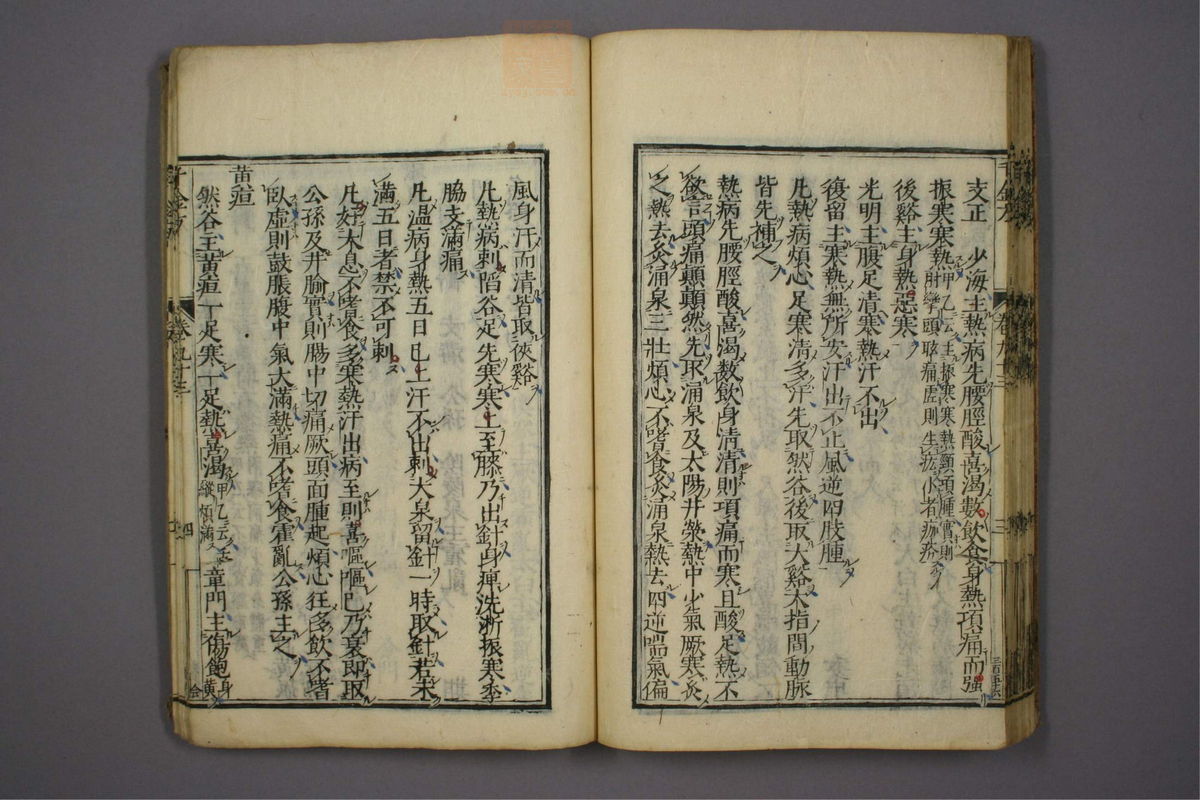 支正 少海主熱病先腰脛酸喜渴數飲食身熱項痛而強
振寒寒熱甲乙云主振寒寒熱頸項腫實則肘攣頭眩痛虛則生疣小者痂疥
後谿主身熱惡寒
光明主腹足清寒熱汗不出
復留主寒熱無所安汗出不止風逆四肢腫
凡熱病煩心足寒清多汗先取然谷後取大谿大指間動脉
皆先補之
熱病先腰脛酸喜渴數飲身清清則項痛而寒且酸足熱不
欲言頭痛顛顛然先取涌泉及太陽井滎熱中少氣厥寒灸
之熱去灸涌泉三壯煩心不嗜食灸涌泉熱去四逆喘氣偏
風身汗而清皆取俠谿
凡熱病刺陷谷足先寒寒上至膝乃出針身痺洗淅振寒季
脇支滿痛
凡溫病身熱五日已上汗不出刺大泉留針一時取針若未
滿五日者禁不可刺
凡好太息不嗜食多寒熱汗出病至則喜嘔嘔已乃衰即取
公孫及井腧實則腸中切痛厥頭面腫起煩心狂多飲不嗜
臥虛則鼓脹腹中氣大滿熱痛不嗜食霍亂公孫主之
黃疸
然谷主黃疸一足寒一足熱喜渴甲乙云舌縱煩滿 章門主傷飽身黃